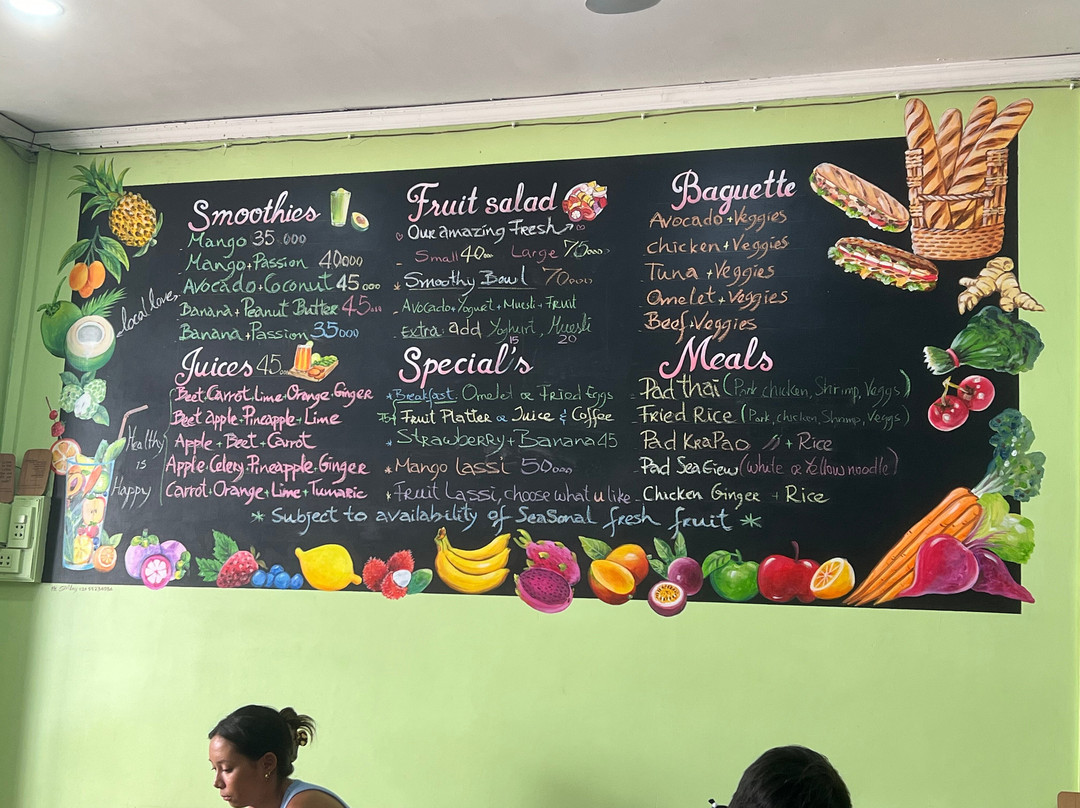 Smoothies
Mango 35 000
Mango + Passion 40000
Avocado + Coconut 45 000
Banana + Peanut Butter 45 000
Banana + Passion 35000
Juices 45 000
Beet Carrot Lime Orange Ginger
Beet Apple Pineapple + Lime
Apple + Beet + Carrot
Apple Celery Pineapple Ginger
Carrot Orange + Lime + Tumaric
local love
Healthy
is
Happy
Fruit salad
Our amazing Fresh
Small 40 000 Large 75000
* Smoothy Bowl 70000
Avocado + Yogurt + Muesli + Fruit
Extra: add Yoghurt, Muesli
15 20
Special's
* Breakfast: Omelet or Fried Eggs
Fruit Platter or Juice & Coffee
* Strawberry + Banana 45
* Mango Lassi 50000
* Fruit Lassi, choose what u like
Baguette
Avocado + Veggies
chicken + Veggies
Tuna + Veggies
Omelet + Veggies
Beef + Veggies
Meals
Pad thai (Pork chicken, Shrimp, Veggs)
Fried Rice (Pork, chicken, Shrimp, Veggs)
Pad KRaPao + Rice
Pad Sea Eiew (white or Yellow noodle)
Chicken Ginger + Rice
* Subject to availability of Seasonal fresh fruit *